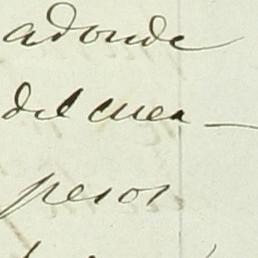 adonde
del cuer—
pesos